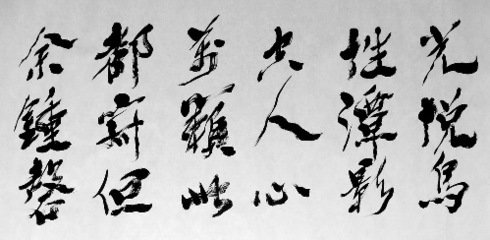 光悦鳥
性潭影
空人心
萬籟此
都寂但
余鍾磬